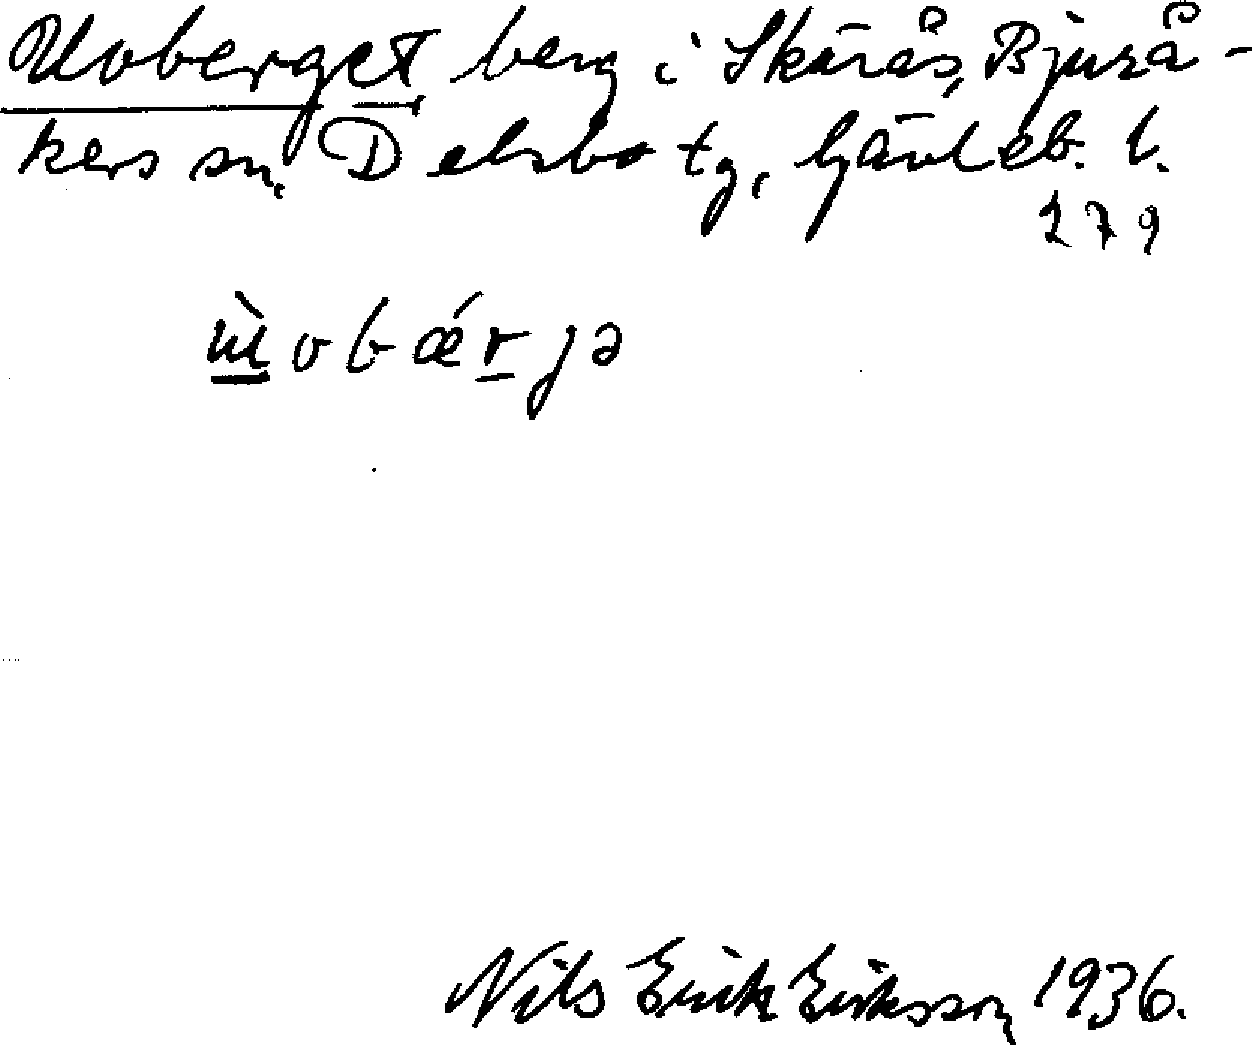 Uvberget berg i Skärås, Bjurå-
kers sn, Delsbo tg, Gävleb. l.
279
Nils Erik Eriksson 1936.